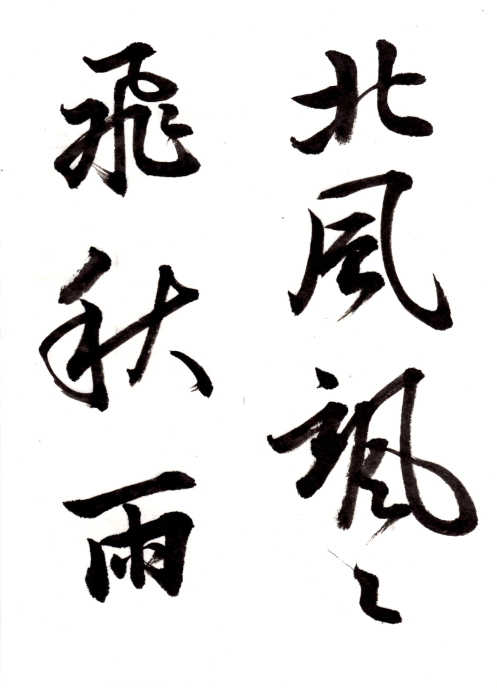 北風颯々
飛秋雨